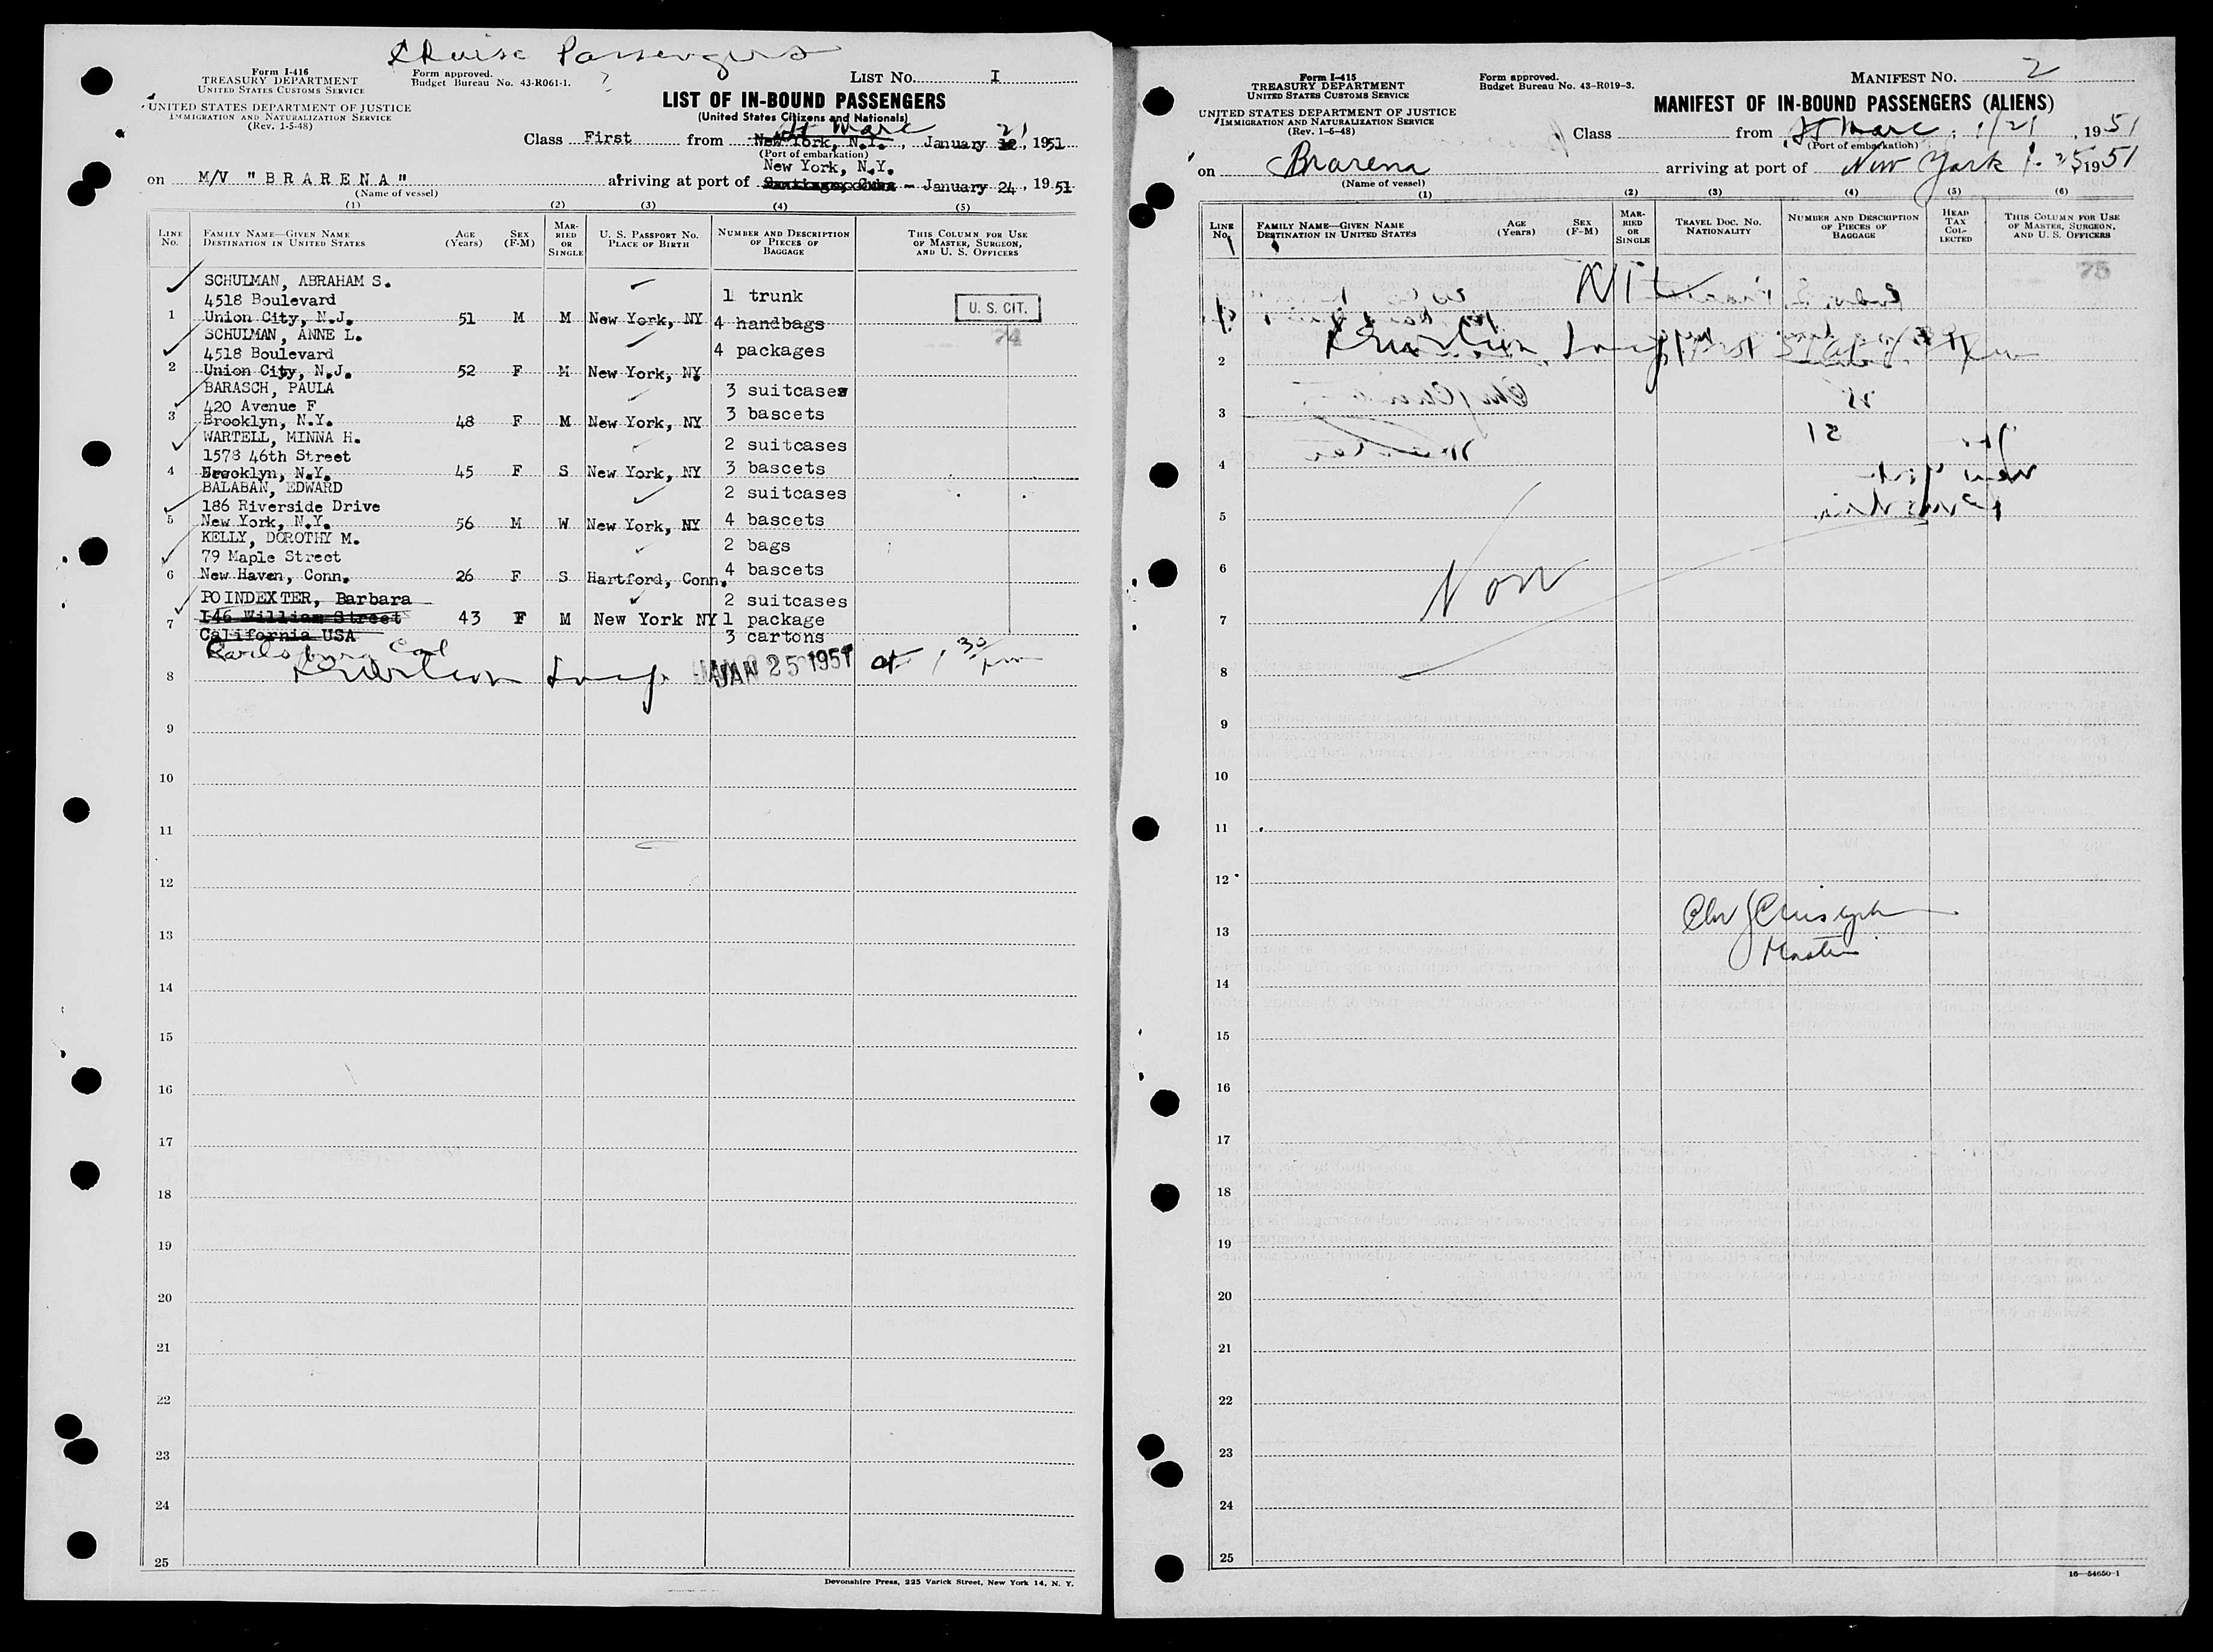 Cruise Passengers
Form I-416
TREASURY DEPARTMENT
UNITED STATES CUSTOMS SERVICE
UNITED STATES DEPARTMENT OF JUSTICE
IMMIGRATION AND NATURALIZATION SERVICE
(Rev. 1-5-48)
Form approved.
Budget Bureau No. 43-R061-1.
?
LIST NO. I
LIST OF IN-BOUND PASSENGERS
(United States Citizens and Nationals)
St Marc 21
Class First from New York, N.Y., January 12, 1951
(Port of embarkation)
New York, N.Y.
on M/V "BRARENA" arriving at port of Santiago, Cuba - January 24, 1951
(Name of vessel)
(1) (2) (3) (4) (5)
LINE No. FAMILY NAME—GIVEN NAME DESTINATION IN UNITED STATES AGE (Years) SEX (F-M) MARRIED OR SINGLE U. S. PASSPORT NO. PLACE OF BIRTH NUMBER AND DESCRIPTION OF PIECES OF BAGGAGE THIS COLUMN FOR USE OF MASTER, SURGEON, AND U. S. OFFICERS
SCHULMAN, ABRAHAM S.
4518 Boulevard 1 trunk U. S. CIT.
1 Union City, N.J. 51 M M New York, NY 4 handbags
SCHULMAN, ANNE L. 74
4518 Boulevard 4 packages
2 Union City, N.J. 52 F M New York, NY
BARASCH, PAULA 3 suitcases
420 Avenue F 3 bascets
3 Brooklyn, N.Y. 48 F M New York, NY
WARTELL, MINNA H. 2 suitcases
1578 46th Street
4 Brooklyn, N.Y. 45 F S New York, NY 3 bascets
BALABAN, EDWARD 2 suitcases
186 Riverside Drive
5 New York, N.Y. 56 M W New York, NY 4 bascets
KELLY, DOROTHY M. 2 bags
79 Maple Street
6 New Haven, Conn. 26 F S Hartford, Conn. 4 bascets
POINDEXTER, Barbara 2 suitcases
7 146 William Street 43 F M New York NY 1 package
California USA 3 cartons
Carlsburg Cal
8 Insp. JAN 25 1951 at 1 30 pm
9
10
11
12
13
14
15
16
17
18
19
20
21
22
23
24
25
Devonshire Press, 225 Varick Street, New York 14, N. Y.
Form I-415
TREASURY DEPARTMENT
UNITED STATES CUSTOMS SERVICE
UNITED STATES DEPARTMENT OF JUSTICE
IMMIGRATION AND NATURALIZATION SERVICE
(Rev. 1-5-48)
Form approved.
Budget Bureau No. 43-R019-3.
MANIFEST NO. 2
MANIFEST OF IN-BOUND PASSENGERS (ALIENS)
Class from St Marc, 1/21, 1951
(Port of embarkation)
on Brarena arriving at port of New York 1-25 1951
(Name of vessel)
(1) (2) (3) (4) (5) (6)
LINE No. FAMILY NAME—GIVEN NAME DESTINATION IN UNITED STATES AGE (Years) SEX (F-M) MARRIED OR SINGLE TRAVEL DOC. NO. NATIONALITY NUMBER AND DESCRIPTION OF PIECES OF BAGGAGE HEAD TAX COLLECTED THIS COLUMN FOR USE OF MASTER, SURGEON, AND U. S. OFFICERS
75
1 Nil
2
3
4
5
6
7 Non
8
9
10
11
12
13
Master
14
15
16
17
18
19
20
21
22
23
24
25
16—54650-1